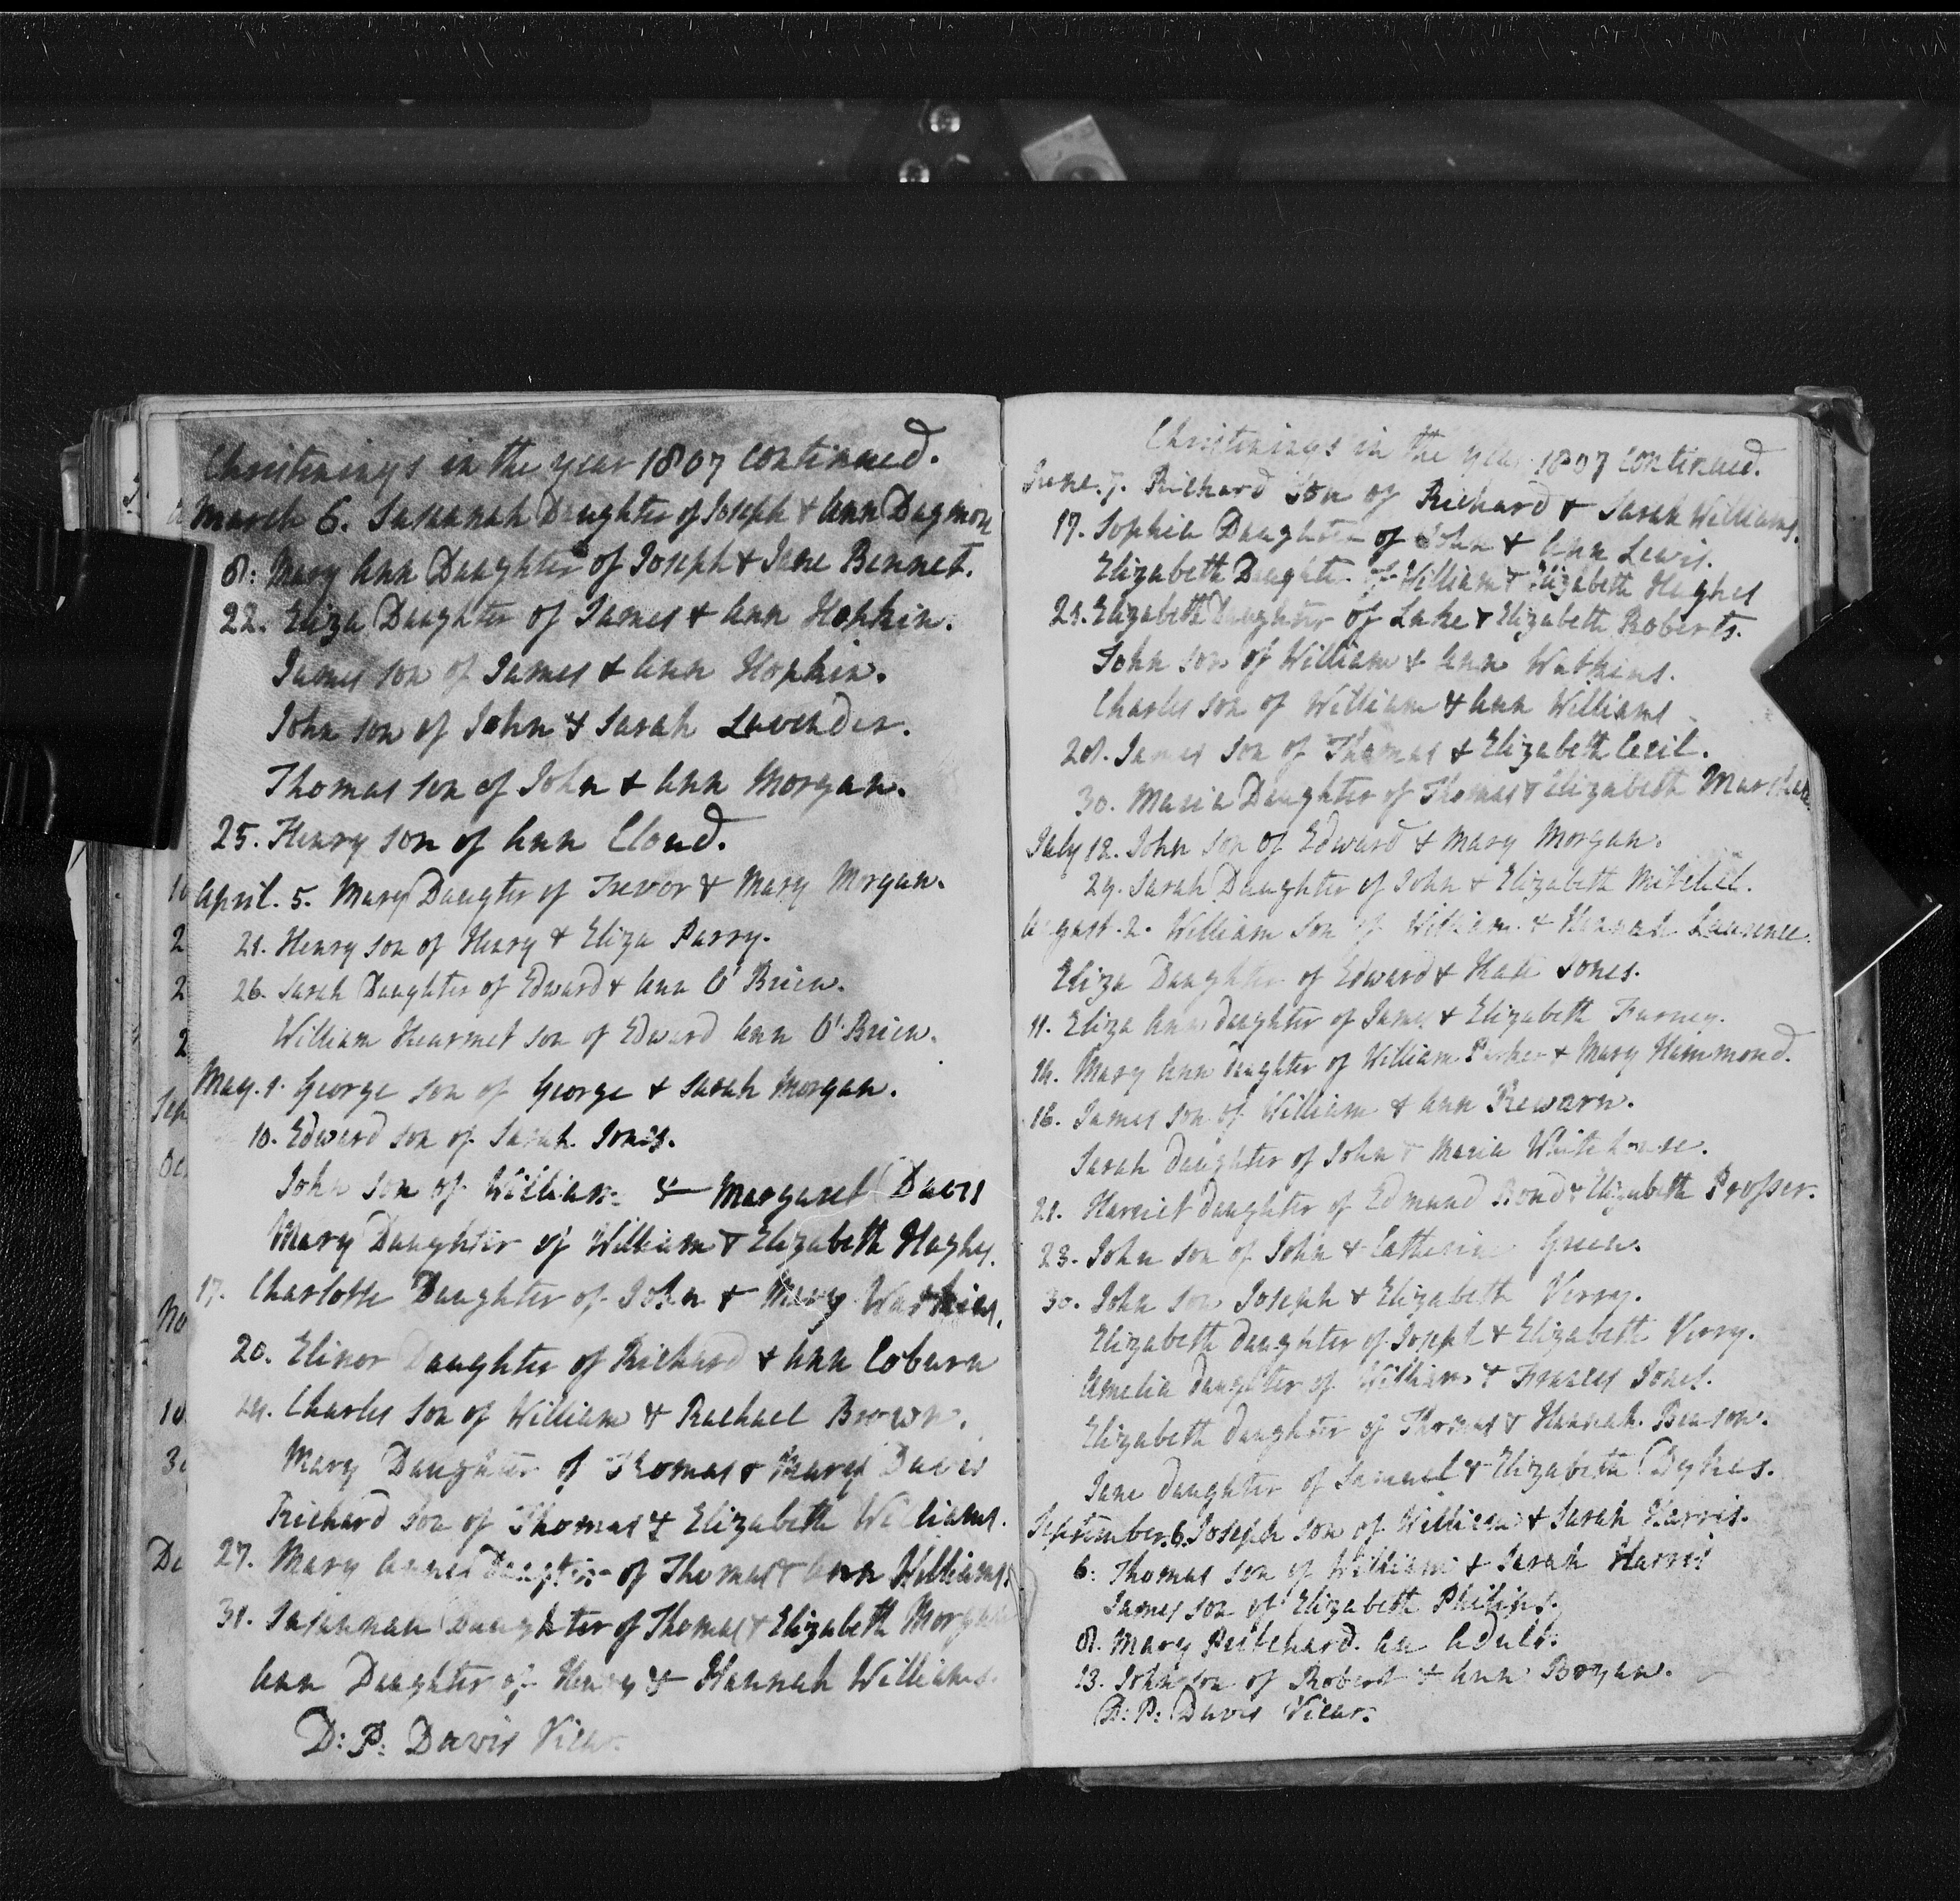 Christenings in the year 1807 continued.
March 6. Susannah Daughter of Joseph & Ann Dagmon
8: Mary Ann Daughter of Joseph & Jane Bennet.
22. Eliza Daughter of James & Ann Hopkin.
James son of James & Ann Hopkin.
John son of John & Sarah Lavender.
Thomas son of John & Ann Morgan.
25. Henry son of Ann Cloud.
April. 5. Mary Daugter of Trevor & Mary Morgan.
21. Henry son of Henry & Eliza Parry.
26. Sarah Daughter of Edward & Ann O'Brien.
William son of Edward Ann O'Brien.
May. George son of George & Sarah Morgan.
10. Edward son of Sarah Jones.
John son of William & Margaret Davis
Mary Daughter of William & Elizabeth Hughes.
17. Charlotte Daughter of John & Mary Watkins.
20. Elinor Daughter of Richard & Ann Coburn
24. Charles son of William & Rachael Brown.
Mary Daughter of Thomas & Mary Davis
Richard son of Thomas & Elizabeth Williams.
27. Mary Daughter of Thomas & Ann Williams
31. Susannah Daughter of Thomas & Elizabeth Morgan
Ann Daughter of Henry & Hannah Williams.
D: P: Davis Vicar.
Christenings in the year 1807 continued.
June. 7. Richard Son of Richard & Sarah Williams.
17. Sophia Daughter of John & Ann Lewis.
Elizabeth Daughter of William & Elizabeth Hughes
21. Elizabeth Daughter of Luke & Elizabeth Roberts.
John son of William & Ann Watkins.
Charles son of William & Ann Williams
28. James son of Thomas & Elizabeth Cecil.
30. Maria Daughter of Thomas & Elizabeth
July 12. John son of Edward & Mary Morgan.
29. Sarah Daughter of John & Elizabeth Mitchel.
August. 2. William son of William & Hannah Laurence.
Eliza Daughter of Edward & Jones.
11. Eliza Ann daughter of James & Elizabeth Furney.
14. Mary Ann daughter of William Parker & Mary Hammond.
16. James son of William & Ann Rewarn.
Sarah daughter of John & Maria Whitehouse.
21. Harriet daughter of Edmund Bond & Elizabeth Prosser.
23. John son of John & Catherine Green.
30. John son Joseph & Elizabeth Verry.
Elizabeth daughter of Joseph & Elizabeth Verry.
Amelia daughter of William & Frances Jones.
Elizabeth daughter of Thomas & Hannah. Benson.
Jane daughter of Samuel & Elizabeth Dykes.
September. 6. Joseph son of William & Sarah Harris.
6: Thomas son of William & Sarah Harris
James son of Elizabeth Philips.
8. Mary Pritchard. An Adult.
13. John son of Robert & Ann Bogan.
D: P: Davis Vicar.